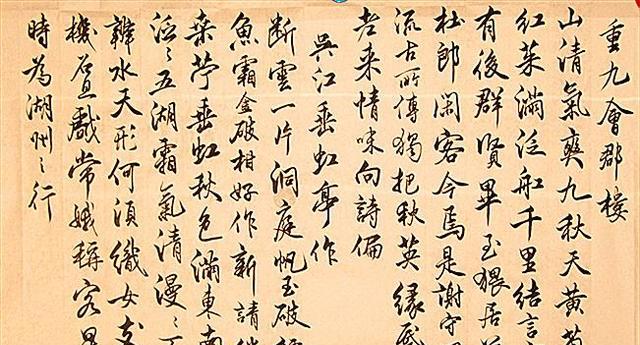 重九會郡樓
山清氣爽九秋天黃菊
紅茱滿泛船千里結言
有後群賢畢至猥居
杜郎閑客今焉是謝守
流古所傳獨把秋英緣底
老來情味向詩偏
吳江垂虹亭作
斷雲一片洞庭帆玉破
魚霜金破柑好作新詩
桑苧垂虹秋色滿東南
泛〻五湖霜氣清漫〻
辨水天形何須織女支
機石且戲常娥稱客星
時為湖州之行